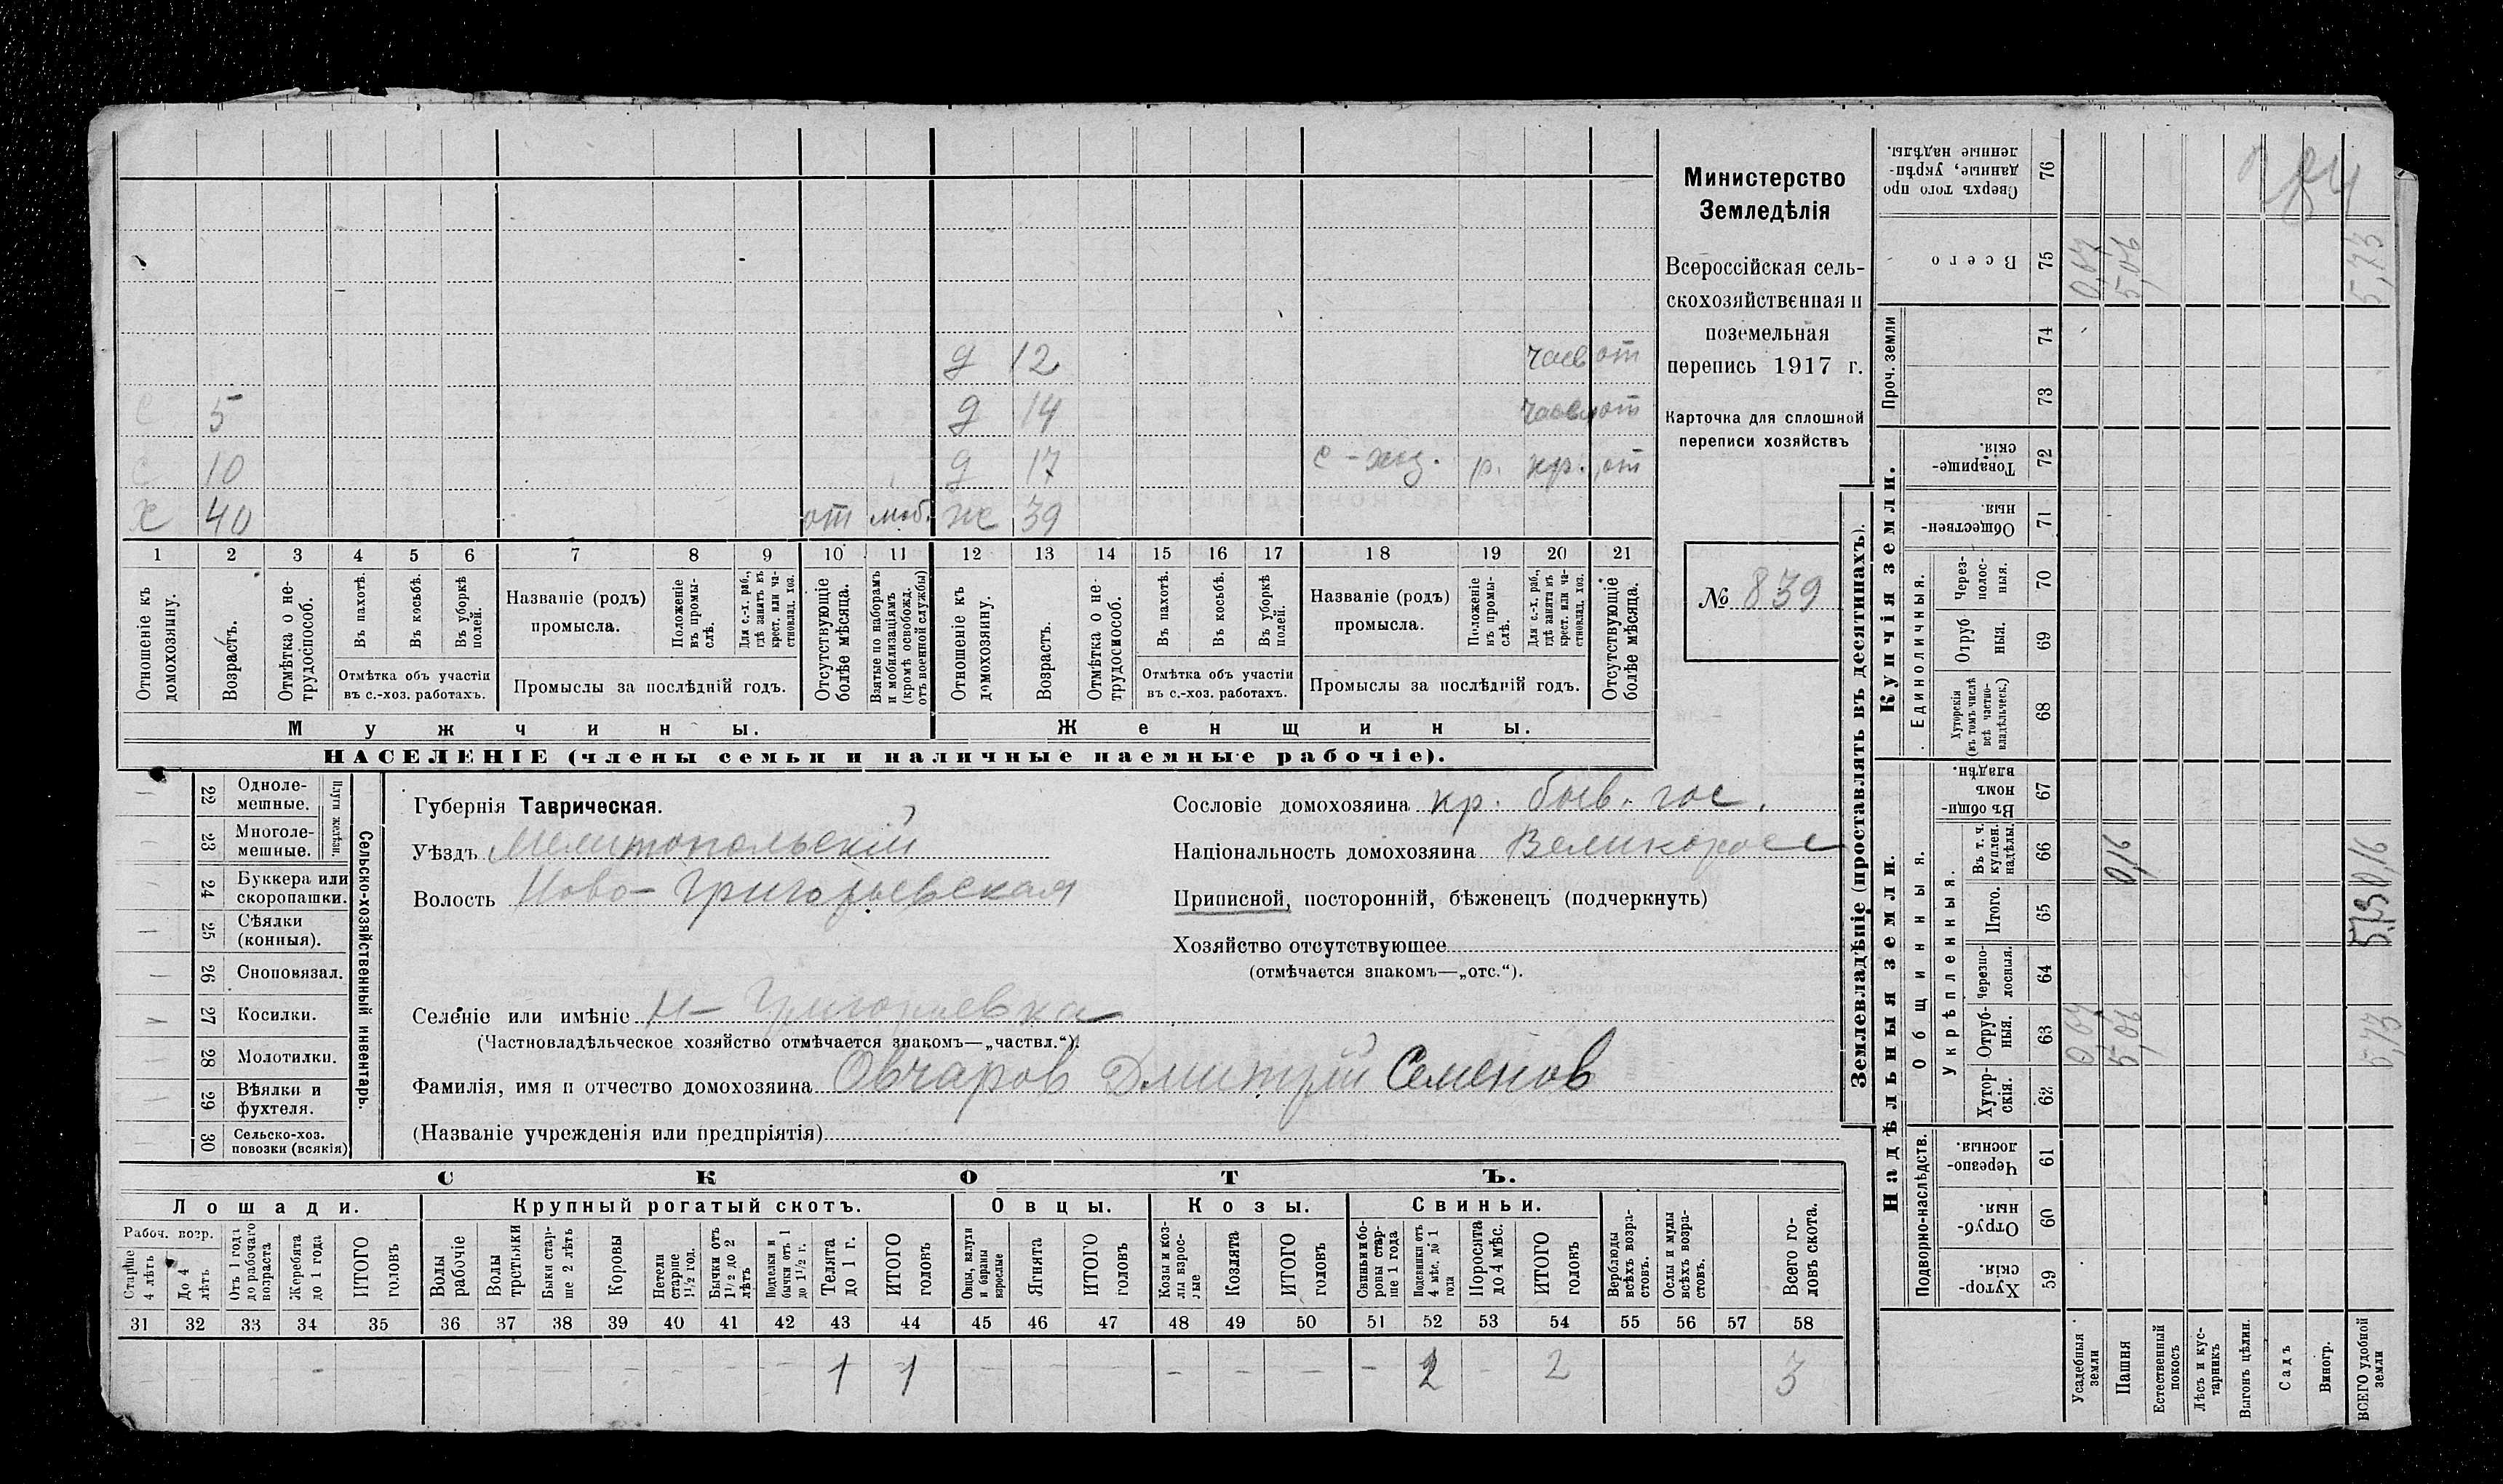 д 12 частв от
с 5 д 14 частв от
с 10 д 17 с-хоз. р. кр. от
х 40 от моб. ж 39
1 2 3 4 5 6 7 8 9 10 11 12 13 14 15 16 17 18 19 20 21
Отношеніе къ домохозяину.
Возрастъ.
Отмѣтка о не-трудоспособ.
Въ пахотѣ.
Въ косьбѣ.
Въ уборкѣ полей.
Отмѣтка объ участіи
въ с.-хоз. работахъ.
Названіе (родъ)
промысла.
Положеніе въ промы-слѣ.
Для с.-х. раб., гдѣ занятъ въ крест. или ча-стновлад. хоз.
Промыслы за послѣдній годъ.
Отсутствующіе болѣе мѣсяца.
Взятые по наборамъ и мобилизаціямъ (кромѣ освобожд. отъ военной службы)
Отношеніе къ домохозяину.
Возрастъ.
Отмѣтка о не-трудоспособ.
Въ пахотѣ.
Въ косьбѣ.
Въ уборкѣ полей.
Отмѣтка объ участіи
въ с.-хоз. работахъ.
Названіе (родъ)
промысла.
Положеніе въ промы-слѣ.
Для с.-х. раб., гдѣ занята въ крест. или ча-стновлад. хоз.
Промыслы за послѣдній годъ.
Отсутствующіе болѣе мѣсяца.
Мужчины. Женщины.
НАСЕЛЕНІЕ (члены семьи и наличные наемные рабочіе).
Министерство
Земледѣлія
Всероссійская сель-
скохозяйственная и
поземельная
перепись 1917 г.
Карточка для сплошной
переписи хозяйствъ
№ 839
22 Одноле-мешные.
23 Многоле-мешные.
Плуги желѣзн.
24 Буккера или скоропашки.
25 Сѣялки (конныя).
26 Сноповязал.
27 Косилки.
28 Молотилки.
29 Вѣялки и фухтеля.
30 Сельско-хоз. повозки (всякія)
Сельско-хозяйственный инвентарь.
Губернія Таврическая.
Уѣздъ Мелитопольскій
Волость Ново-Григорьевская
Сословіе домохозяина кр. быв. гос.
Національность домохозяина Великоросс
Приписной, посторонній, бѣженецъ (подчеркнуть)
Хозяйство отсутствующее
(отмѣчается знакомъ—„отс.“).
Селеніе или имѣніе Н-Григорьевка
(Частновладѣльческое хозяйство отмѣчается знакомъ—„частвл.“).
Фамилія, имя и отчество домохозяина Овчаров Дмитрій Семенов
(Названіе учрежденія или предпріятія)
СКОТЪ.
Лошади. Крупный рогатый скотъ. Овцы. Козы. Свиньи.
Рабоч. возр.
Старше 4 лѣтъ
До 4 лѣтъ
Отъ 1 года до рабочаго возраста
Жеребята до 1 года
ИТОГО головъ
Волы рабочіе
Волы третьяки
Быки стар-ше 2 лѣтъ
Коровы
Нетели старше 1½ год.
Бычки отъ 1½ до 2 лѣтъ
Подтелки и бычки отъ 1 до 1½ г.
Телята до 1 г.
ИТОГО головъ
Овцы, валухи и бараны взрослые
Ягнята
ИТОГО головъ
Козы и коз-лы взрос-лые
Козлята
ИТОГО головъ
Свиньи и бо-ровы стар-ше 1 года
Подсвинки отъ 4 мѣс. до 1 года
Поросята до 4 мѣс.
ИТОГО головъ
Верблюды всѣхъ возра-стовъ.
Ослы и мулы всѣхъ возра-стовъ.
Всего го-ловъ скота.
31 32 33 34 35 36 37 38 39 40 41 42 43 44 45 46 47 48 49 50 51 52 53 54 55 56 57 58
1 1 2 2 3
Землевладѣніе (проставлять въ десятинахъ).
Купчія земли.
Надѣльныя земли.
Сверхъ того про-данные, укрѣп-ленные надѣлы. 76
Всего 75 0,67 5,06 5,73
Проч. земли 74
73
Товарище-скія. 72
Обществен-ныя. 71
Единоличныя.
Через-полос-ныя. 70
Отруб-ныя. 69
Хуторскія (въ томъ числѣ всѣ частно-владѣльческ.) 68
Общинныя.
Въ общи-номъ владѣн. 67
Укрѣпленныя.
Въ т. ч. куплен. надѣлы. 66 0,16 0,16
Итого. 65 5,73
Черезпо-лосныя. 64
Отруб-ныя. 63 0,67 5,06 5,73
Хутор-скія. 62
Подворно-наслѣдств.
Черезпо-лосныя. 61
Отруб-ныя. 60
Хутор-скія. 59
Усадебныя земли
Пашня
Естественный покосъ
Лѣсъ и кус-тарникъ
Выгонъ цѣлин.
Садъ
Виногр.
ВСЕГО удобной земли